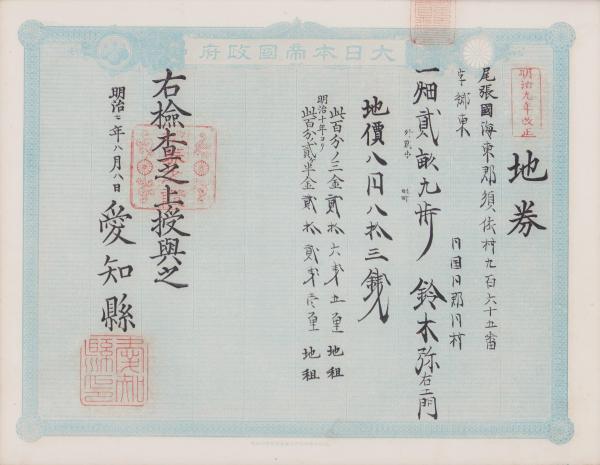 大日本帝國政府
明治九年改正
地券
尾張國海東郡須依村九百六十五番
字郷東
一畑貳畝九歩
外
同国同郡同村
鈴木弥右エ門
地價八円八拾三錢
此百分ノ三金貳拾六錢五厘 地租
明治十年ヨリ
此百分ノ貳半金貳拾貳錢壱厘 地租
右檢査之上授與之
明治 年八月八日
愛知縣
愛知縣印